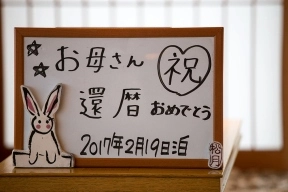 お母さん
祝
還暦おめでとう
2017年2月19日泊
松月